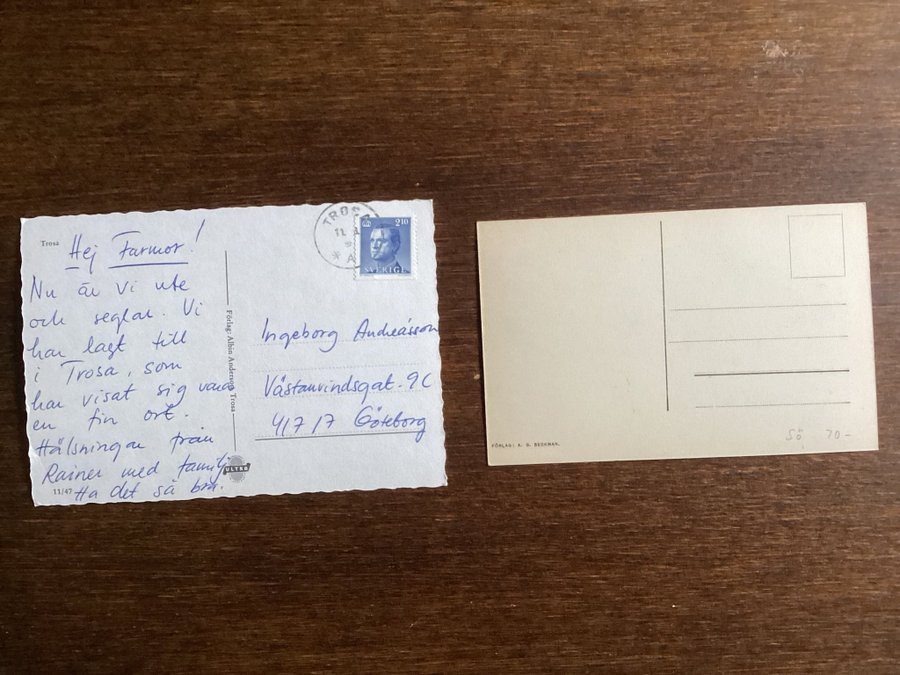 Trosa
Hej Farmor!
Nu är vi ute
och seglar. Vi
har lagt till
i Trosa, som
har visat sig vara
en fin ort.
Hälsningar från
Rainer med familj
Ha det så bra.
11/47
Förlag: Albin Anderson, Trosa
ULTRA
TROSA
11
* A
2.10
SVERIGE
Ingeborg Andreásson
Västanvindsgat. 9C
417 17 Göteborg
FÖRLAG: A. B. BECKMAN.
Sö 70-